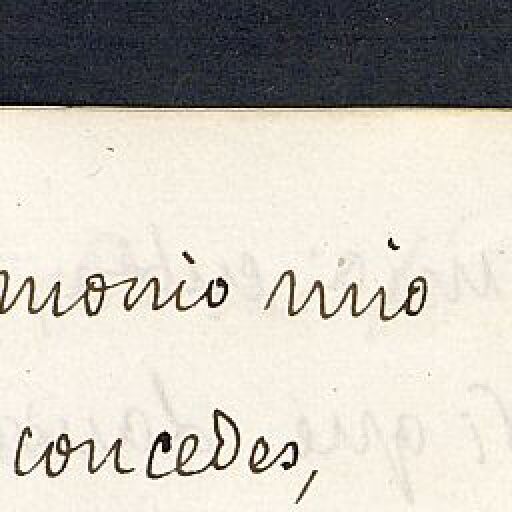 monio mio
concedes,